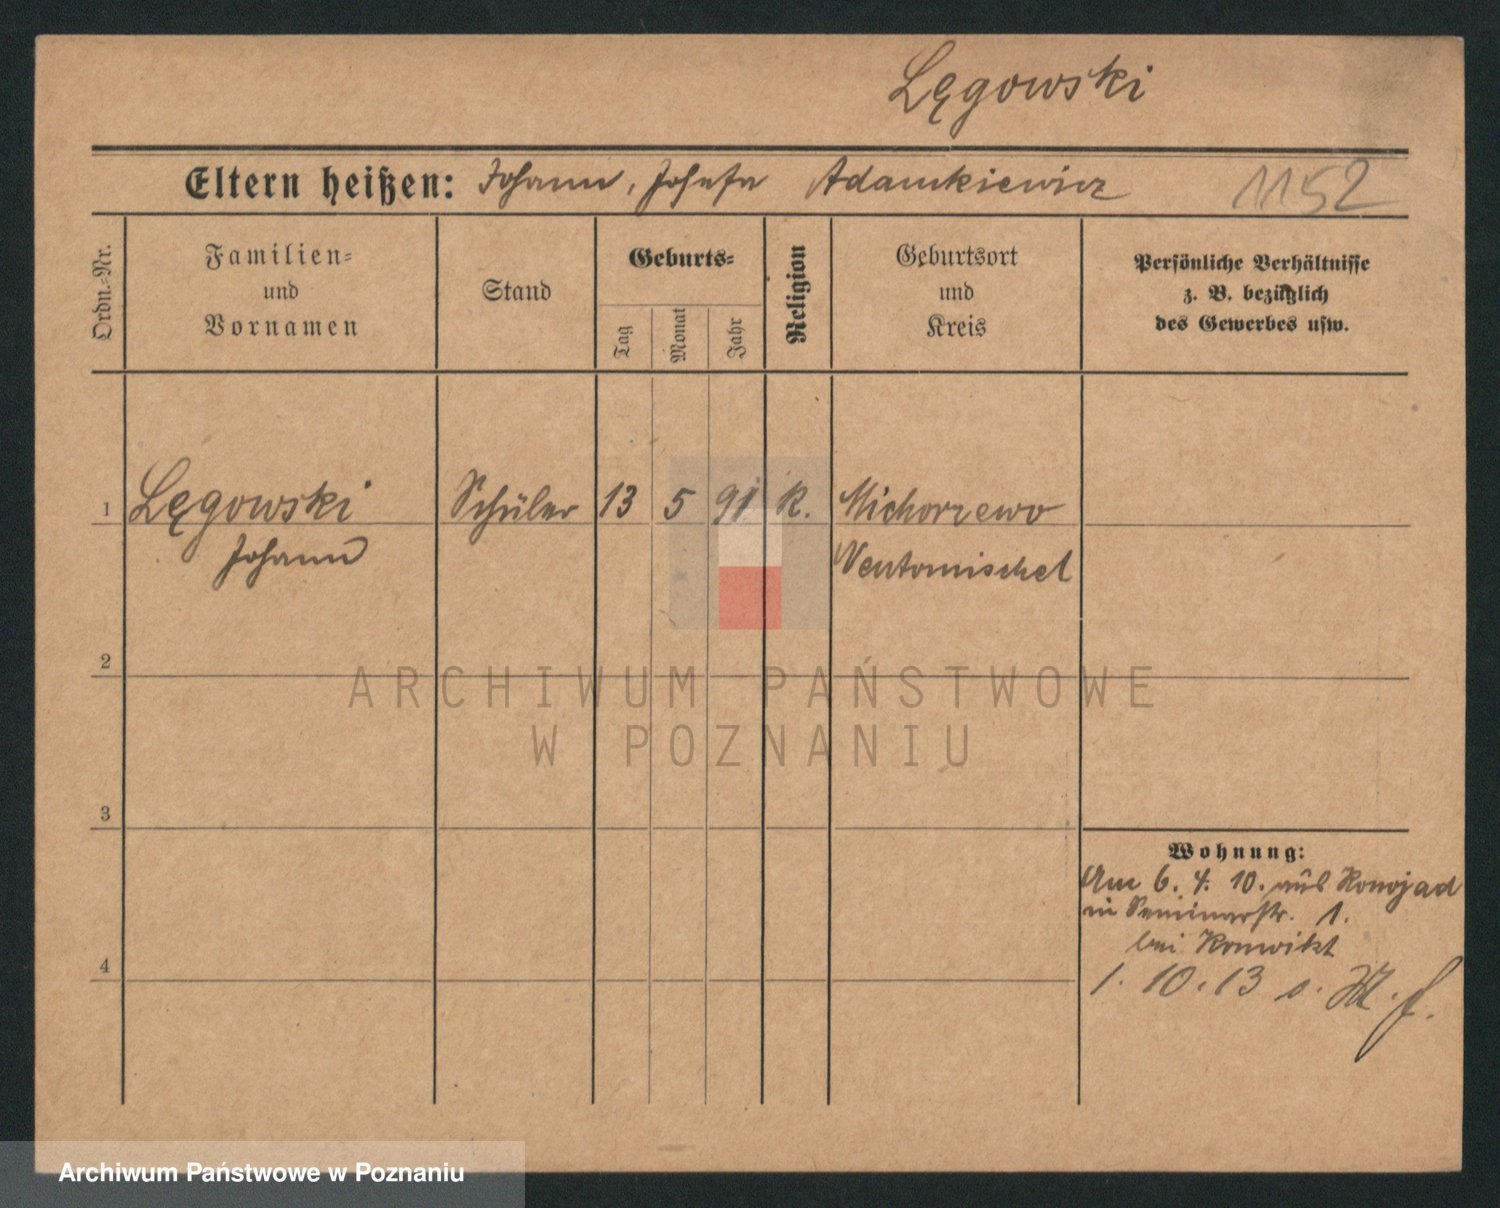 Lęgowski
Eltern heißen: Johann, Josefa Adamkiewicz 1152
Ordn.-Nr.
Familien-
und
Vornamen
Stand
Geburts-
Tag
Monat
Jahr
Religion
Geburtsort
und
Kreis
Persönliche Verhältnisse
z. B. bezüglich
des Gewerbes usw.
1 Lęgowski Schüler 13 5 91 K. Michorzewo
Johann Neutomischel
2
ARCHIWUM PAŃSTWOWE
W POZNANIU
3
Wohnung:
Am 6. 4. 10. aus Konojad
in Seminarstr. 1.
bei Konwikt
4
1. 10. 13
Archiwum Państwowe w Poznaniu